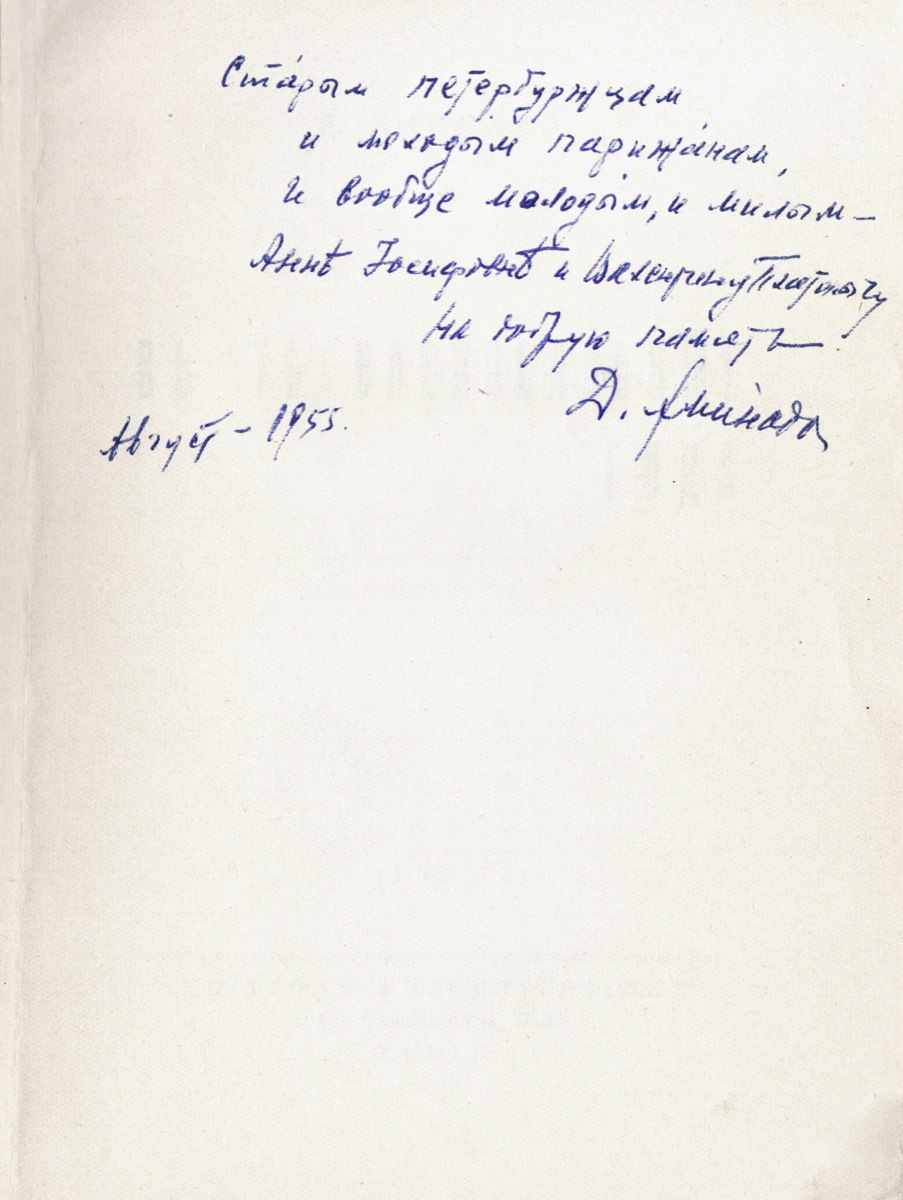 Ста́рым петербуржцам
и молодым парижа́нам,
И вообще молодым, и милым —
Аннѣ Іосифовнѣ и Валентину Платонычу
На добрую память
Д. Аминадо
Август – 1955.